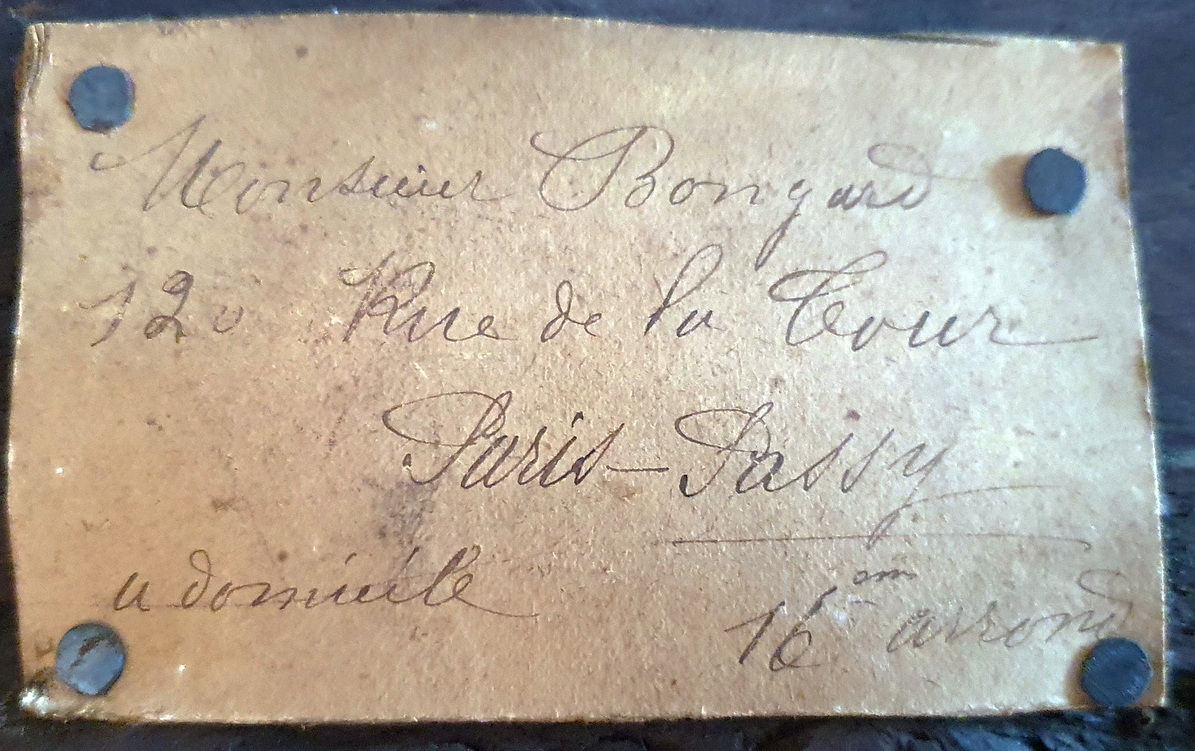 Monsieur Bongard
120 Rue de la Tour
Paris-Passy
a domicile
16em arrond